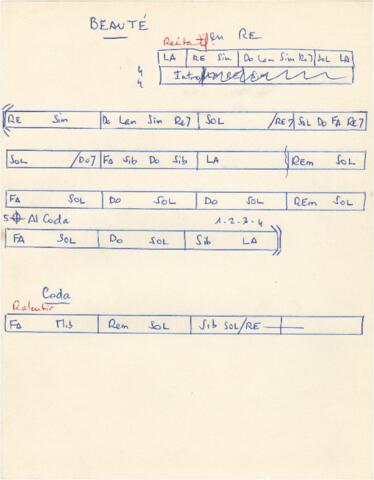 BEAUTÉ
Récitatif: en RE
LA | RE Sim | Do Lam Sim Re7 | SOL LA
4 4 Intro
RE Sim | Do Lam Sim Re7 | SOL /RE7 | SOL Do FA RE7
SOL /Do7 | FA Sib Do Sib | LA | REm SOL
FA SOL | Do SOL | Do SOL | REm SOL
5 Al Coda 1.2.3.4
FA SOL | Do SOL | Sib LA
Coda
Ralentir
FA Mib | Rem SOL | Sib SOL/RE